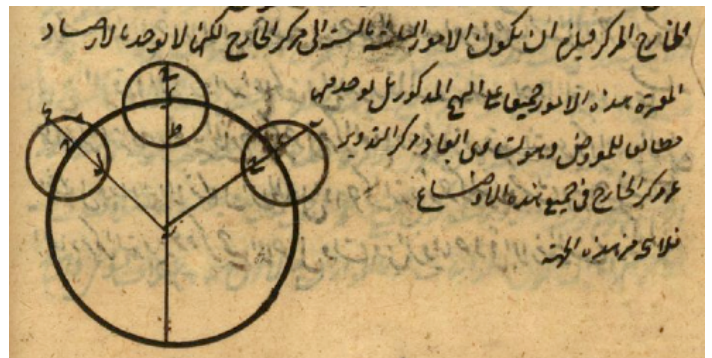 الخارج المركز فيلزم ان يكون الامور الثلثة بالنسبة الى مركز الخارج لكنها لا توجد بالارصاد
المعتبرة هذه الامور جميعا على النهج المذكور بل يوجد فيها
مطابقا للمفروض وهو تساوى ابعاد مركز التدوير
عن مركز الخارج فى جميع هذه الاوضاع
من هذه الجهة